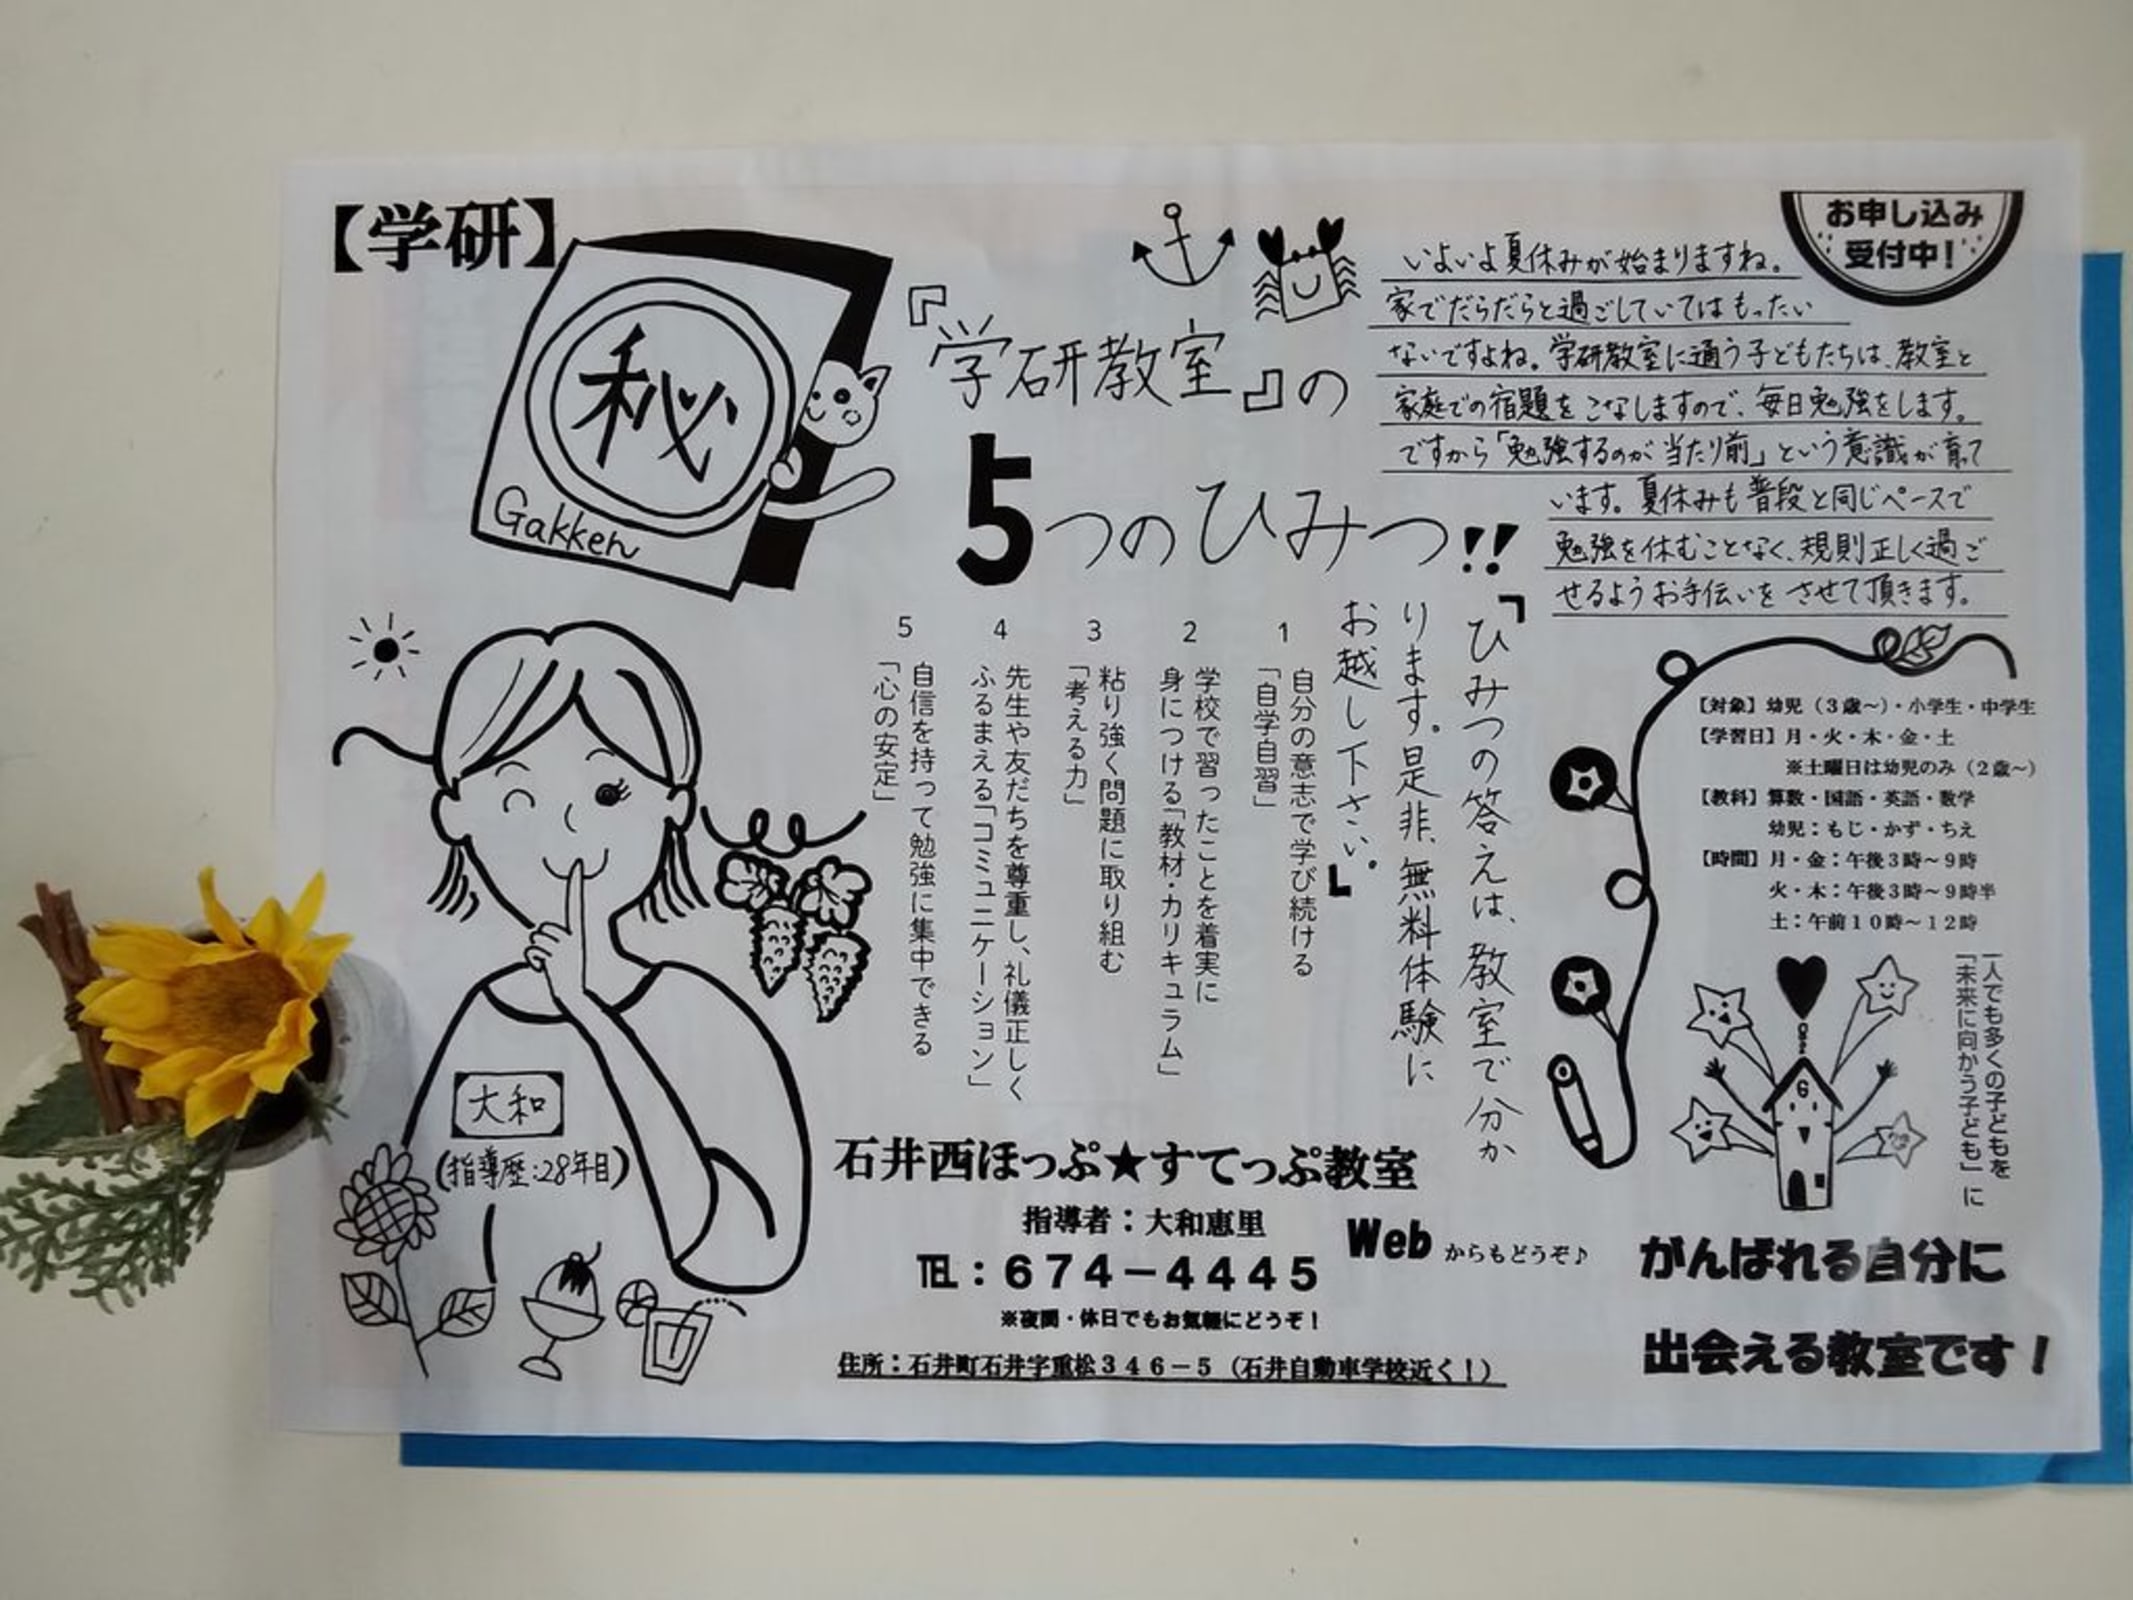 【学研】
秘
Gakken
『学研教室』の
5つのひみつ!!
お申し込み
受付中！
いよいよ夏休みが始まりますね。
家でだらだらと過ごしていてはもったい
ないですよね。学研教室に通う子どもたちは、教室と
家庭での宿題をこなしますので、毎日勉強をします。
ですから「勉強するのが当たり前」という意識が育って
います。夏休みも普段と同じペースで
勉強を休むことなく、規則正しく過ご
せるようお手伝いをさせて頂きます。
「ひみつの答えは、教室で分か
ります。是非、無料体験に
お越し下さい。」
1
自分の意志で学び続ける
「自学自習」
2
学校で習ったことを着実に
身につける「教材・カリキュラム」
3
粘り強く問題に取り組む
「考える力」
4
先生や友だちを尊重し、礼儀正しく
ふるまえる「コミュニケーション」
5
自信を持って勉強に集中できる
「心の安定」
大和
(指導歴:28年目)
石井西ほっぷ★すてっぷ教室
指導者：大和恵里
℡：674－4445
※夜間・休日でもお気軽にどうぞ！
住所：石井町石井字重松346－5（石井自動車学校近く！）
Web からもどうぞ♪
【対象】幼児（3歳～）・小学生・中学生
【学習日】月・火・木・金・土
※土曜日は幼児のみ（2歳～）
【教科】算数・国語・英語・数学
幼児：もじ・かず・ちえ
【時間】月・金：午後3時～9時
火・木：午後3時～9時半
土：午前10時～12時
一人でも多くの子どもを
「未来に向かう子ども」に
G
がんばれる自分に
出会える教室です！